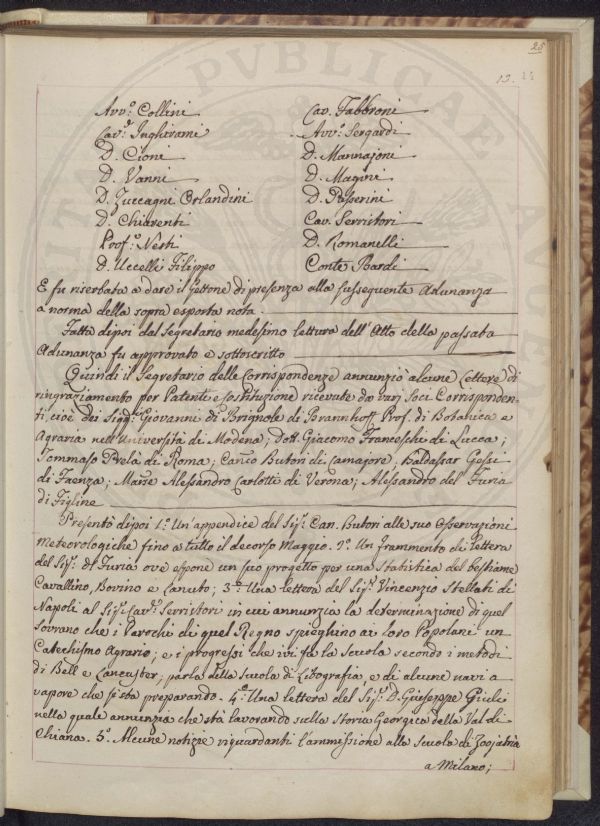 25
13.
Avv.º Collini
Cav.e Inghirami
D. Cioni
D. Vanni
D. Zuccagni Orlandini
D. Chiarenti
Prof.e Nesti
D. Uccelli Filippo
Cav. Fabbroni
Avv.º Sergardi
D. Mannajoni
D. Magini
D. Passerini
Cav. Serristori
D. Romanelli
Conte Bardi
E fu riserbata a dare il gettone di presenza alla susseguente Adunanza
a norma della sopra esposta nota.
Fatta dipoi dal Segretario medesimo lettura dell'Atto della passata
Adunanza fu approvato e sottoscritto
Quindi il Segretario delle Corrispondenze annunziò alcune Lettere di
ringraziamento per Patente e sostituzione ricevute da varj Soci Corrisponden-
ti, cioè dei Sigg.ri Giovanni di Brignole di Brannhoff Prof. di Botanica e
Agraria nell'Università di Modena; Dott. Giacomo Franceschi di Lucca;
Tommaso Prelà di Roma; Can.co Butori di Camajore, Baldassar Gessi
di Faenza; Mar.se Alessandro Carlotti di Verona; Alessandro del Furia
di Figline
Presentò dipoi 1.º Un'appendice del Sig.r Can. Butori alle sue Osservazioni
Meteorologiche fino a tutto il decorso Maggio. 2.º Un frammento di lettera
del Sig.r del Furia ove espone un suo progetto per una Statistica del bestiame
Cavallino, Bovino e Lanuto; 3.º Una lettera del Sig.r Vincenzio Stellati di
Napoli al Sig.r Cav.e Serristori in cui annunzia la determinazione di quel
Sovrano che i Parochi di quel Regno spieghino ai loro Popolani un
Catechismo Agrario; e i progressi che ivi fa la Scuola secondo i metodi
di Bell e Lancaster; parla della Scuola di Litografia, e di alcune navi a
vapore che si sta preparando. 4.º Una lettera del Sig.r D. Giuseppe Giulj
nella quale annunzia che sta lavorando sulla Storia Georgica della Val di
Chiana. 5.º Alcune notizie riguardanti l'ammissione alla Scuola di Zoojatria
a Milano;